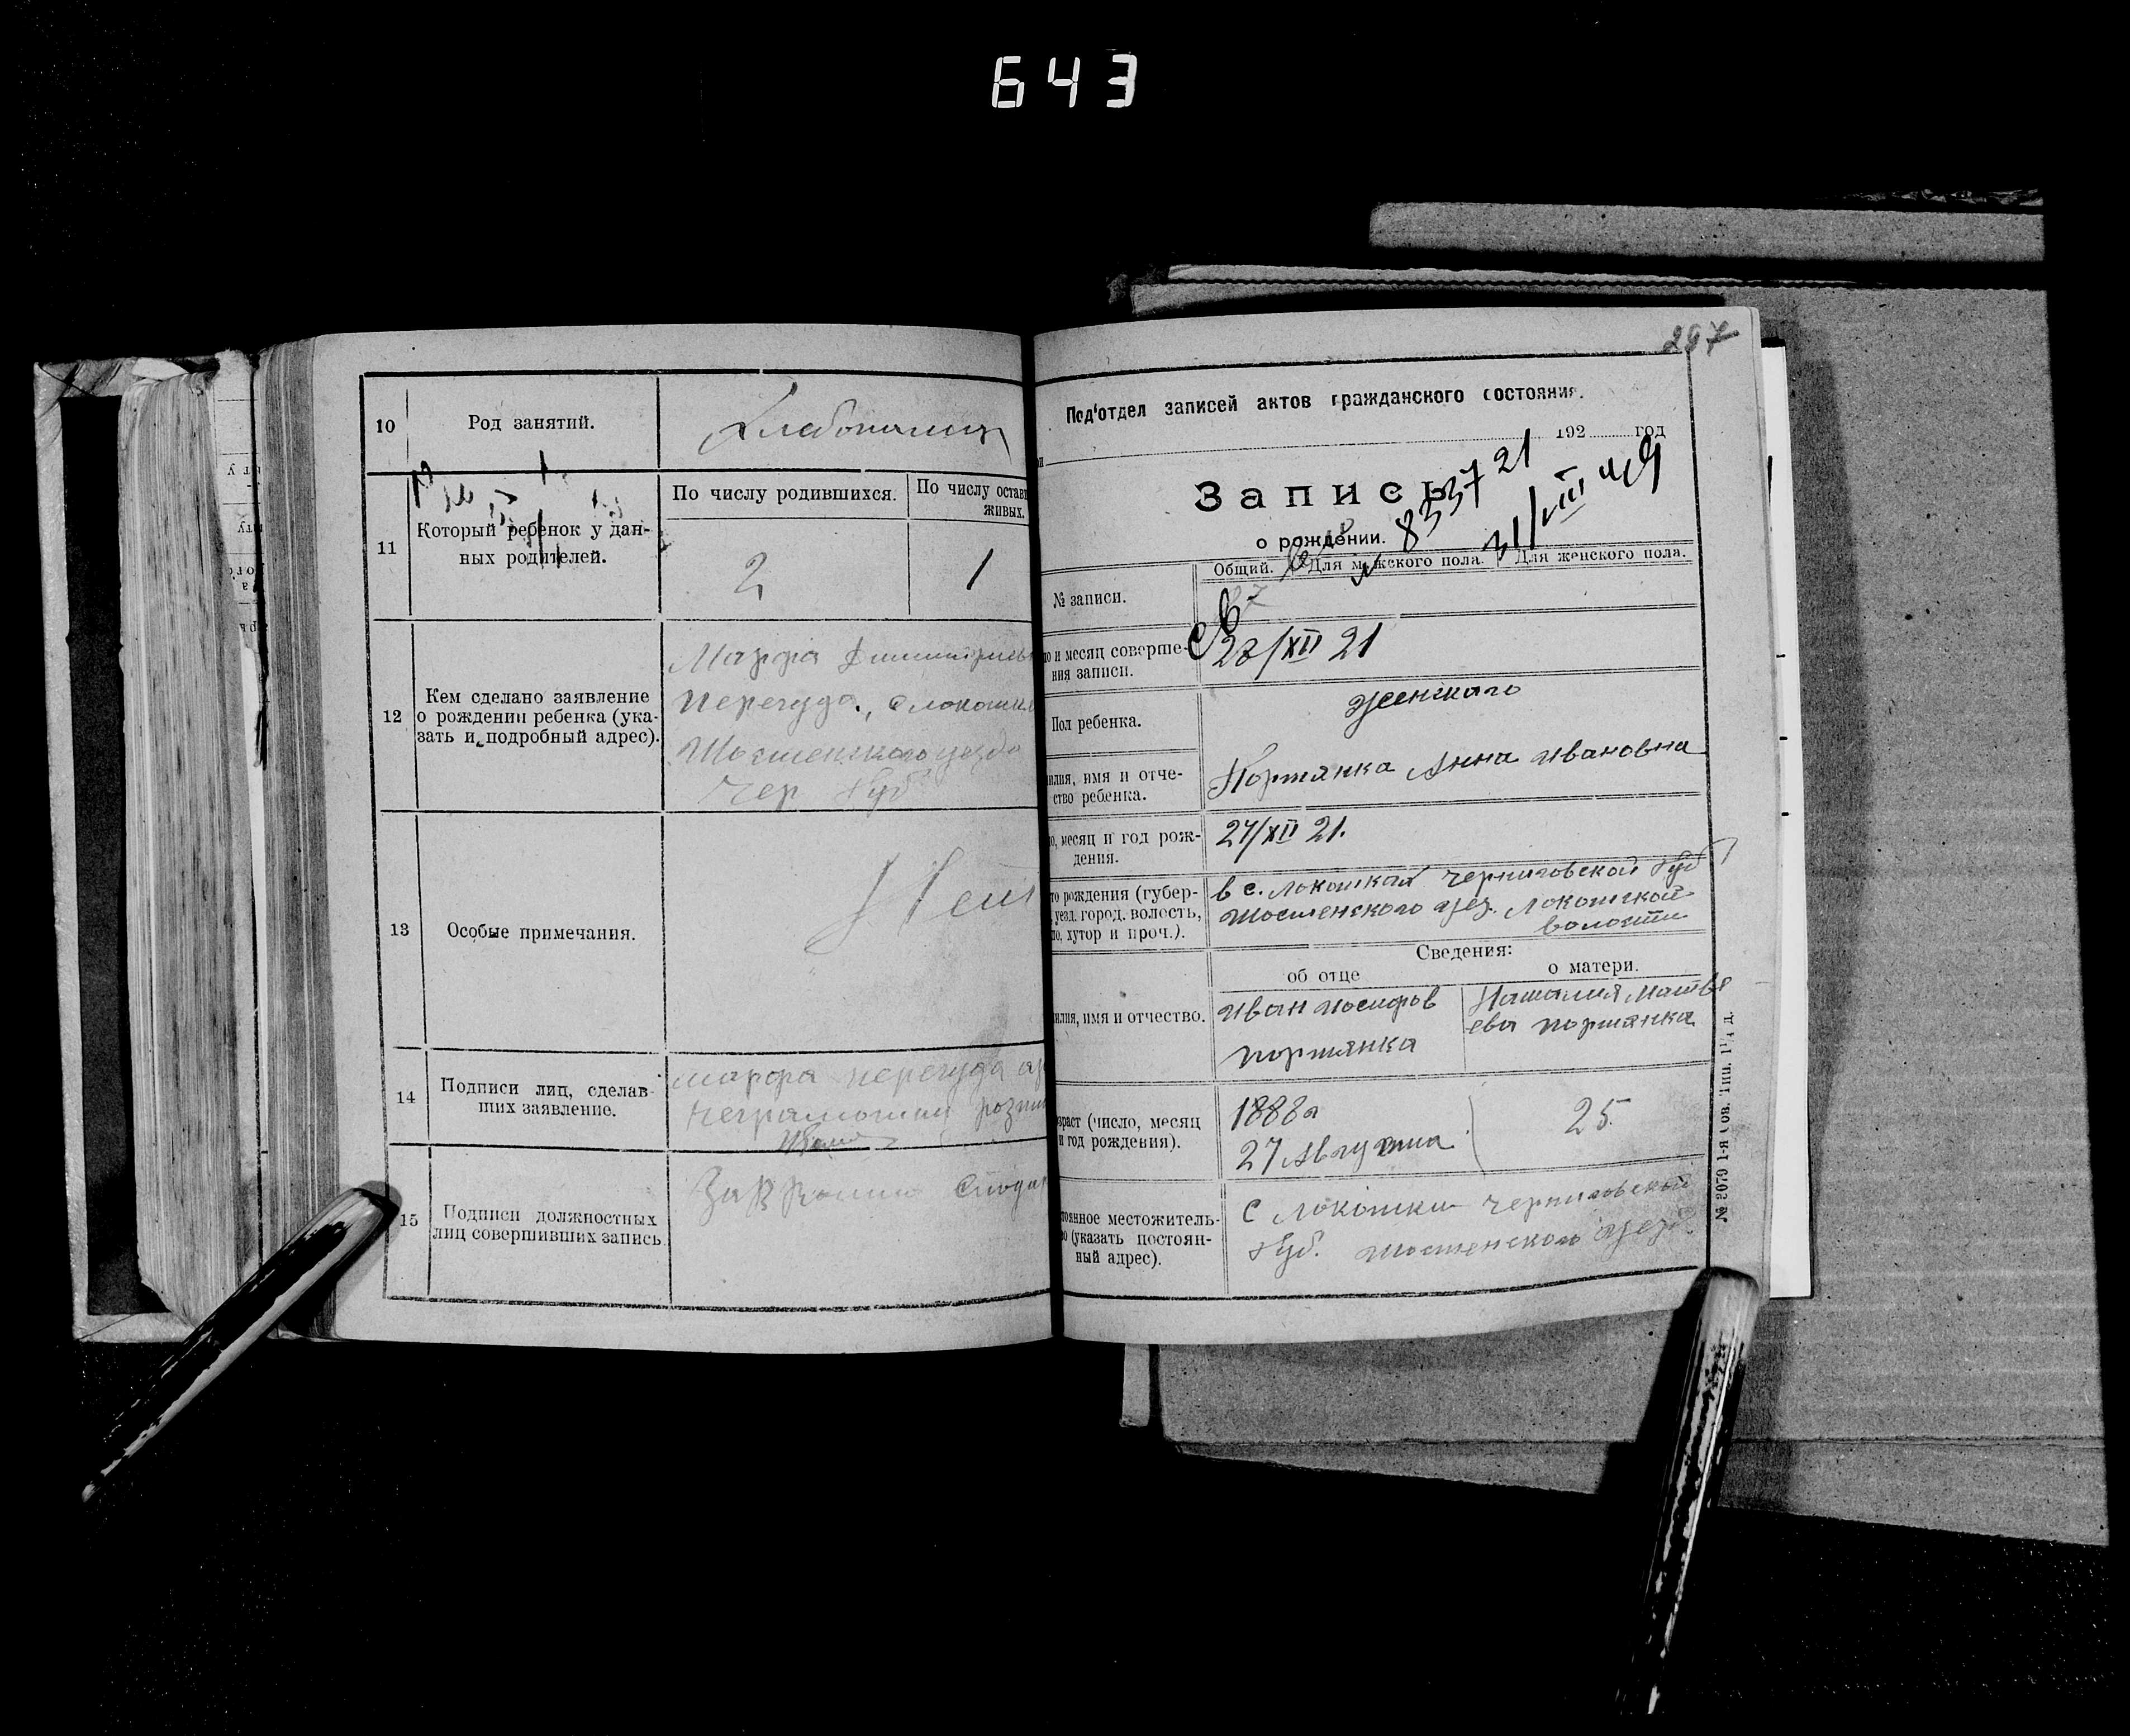 643
10
Род занятий.
11
Который ребенок у дан-
ных родителей.
По числу родившихся.
По числу остав
живых.
2
1
12
Кем сделано заявление
о рождении ребенка (ука-
зать и подробный адрес).
Марфа
Перегуда.,
уезда
Чер Губ
13
Особые примечания.
14
Подписи лиц, сделав-
ших заявление.
марфа перегуда
15
Подписи должностных
лиц совершивших запись.
297
Под'отдел записей актов гражданского состояния.
192 год
Запись
о рождении.
833721
31/VIII 49
Общий. Для мужского пола. Для женского пола.
№ записи.
о и месяц соверше-
ния записи.
28/XII 21
Пол ребенка.
женского
илия, имя и отче-
ство ребенка.
Портянка Анна Ивановна
о, месяц и год рож-
дения.
27/XII 21.
то рождения (губер-
уезд. город. волость,
о, хутор и проч.).
в с. Локошках Черниговской Губ
уез. Локошской
волости
Сведения:
об отце
о матери.
илия, имя и отчество.
Иван Иосифов
портянка
Наталия Матве
ева портянка
зраст (число, месяц
и год рождения).
1888 г
27 Августа
25.
тоянное местожитель-
о (указать постоян-
ный адрес).
с Локошки Черниговской
Губ. уезд.
№ 3079 1-я Сов. Тип.